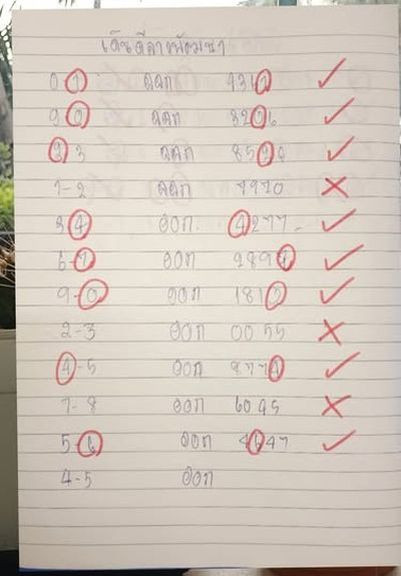 เด่นดีลาวพัฒนา
0 1 ออก
9 0 ออก 8206
9 3 ออก 8596
1-2 ออก
3 4 ออก 4277
6-7 ออก 2897
9-0 ออก 1810
2-3 ออก 0055
4-5 ออก 8774
7-8 ออก 6045
5-6 ออก 4647
4-5 ออก